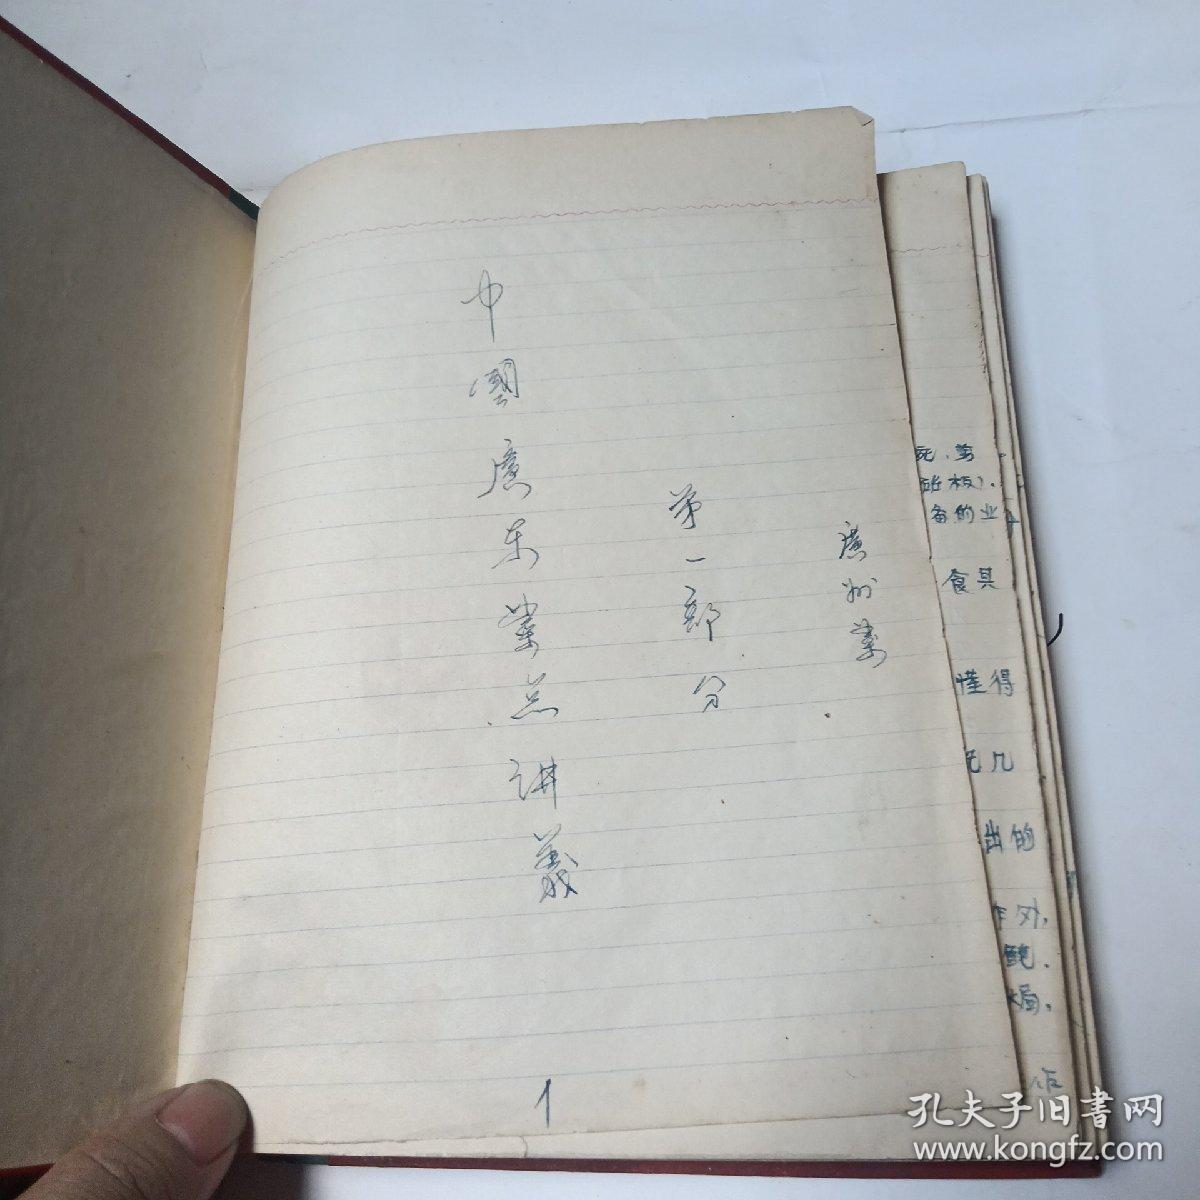 中國廣东菜点讲義
第一部分
廣州菜
1
板).
备的业
食具
懂得
几
出的
外,
局.
孔夫子旧書网
www.kongfz.com